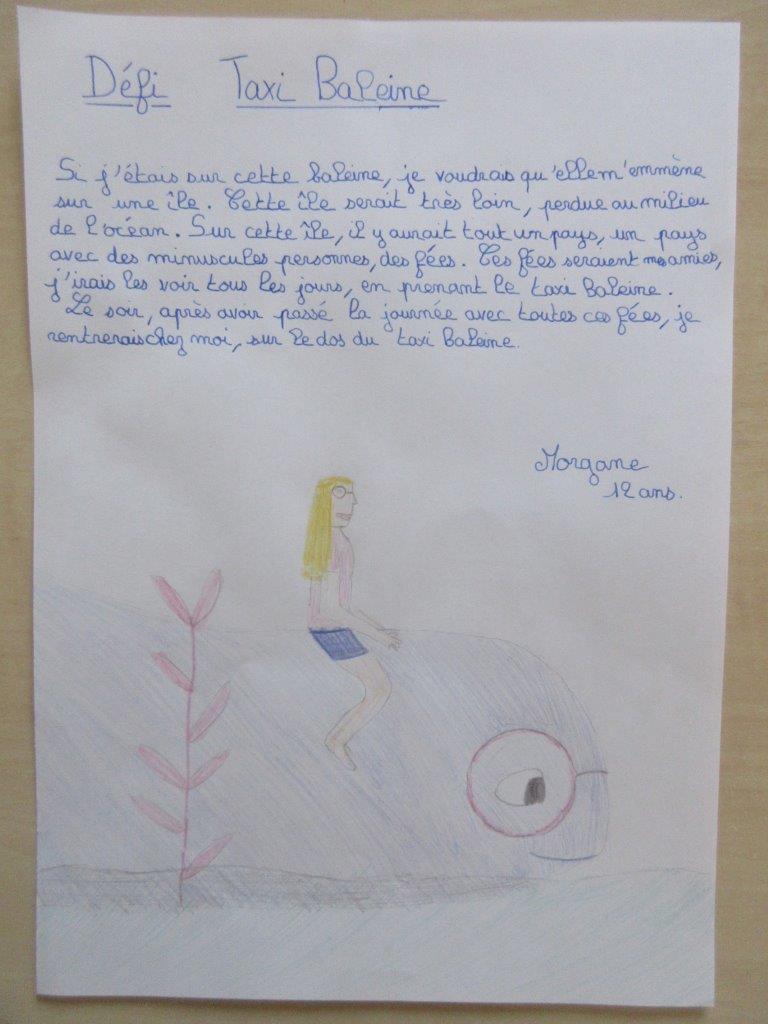 Défi Taxi Baleine
Si j'étais sur cette baleine, je voudrais qu'elle m'emmène
sur une île. Cette île serait très loin, perdue au milieu
de l'océan. Sur cette île, il y aurait tout un pays, un pays
avec des minuscules personnes, des fées. Ces fées seraient mes amies,
j'irais les voir tous les jours, en prenant le taxi baleine.
Le soir, après avoir passé la journée avec toutes ces fées, je
rentrerais chez moi, sur le dos du taxi baleine.
Morgane
12 ans.